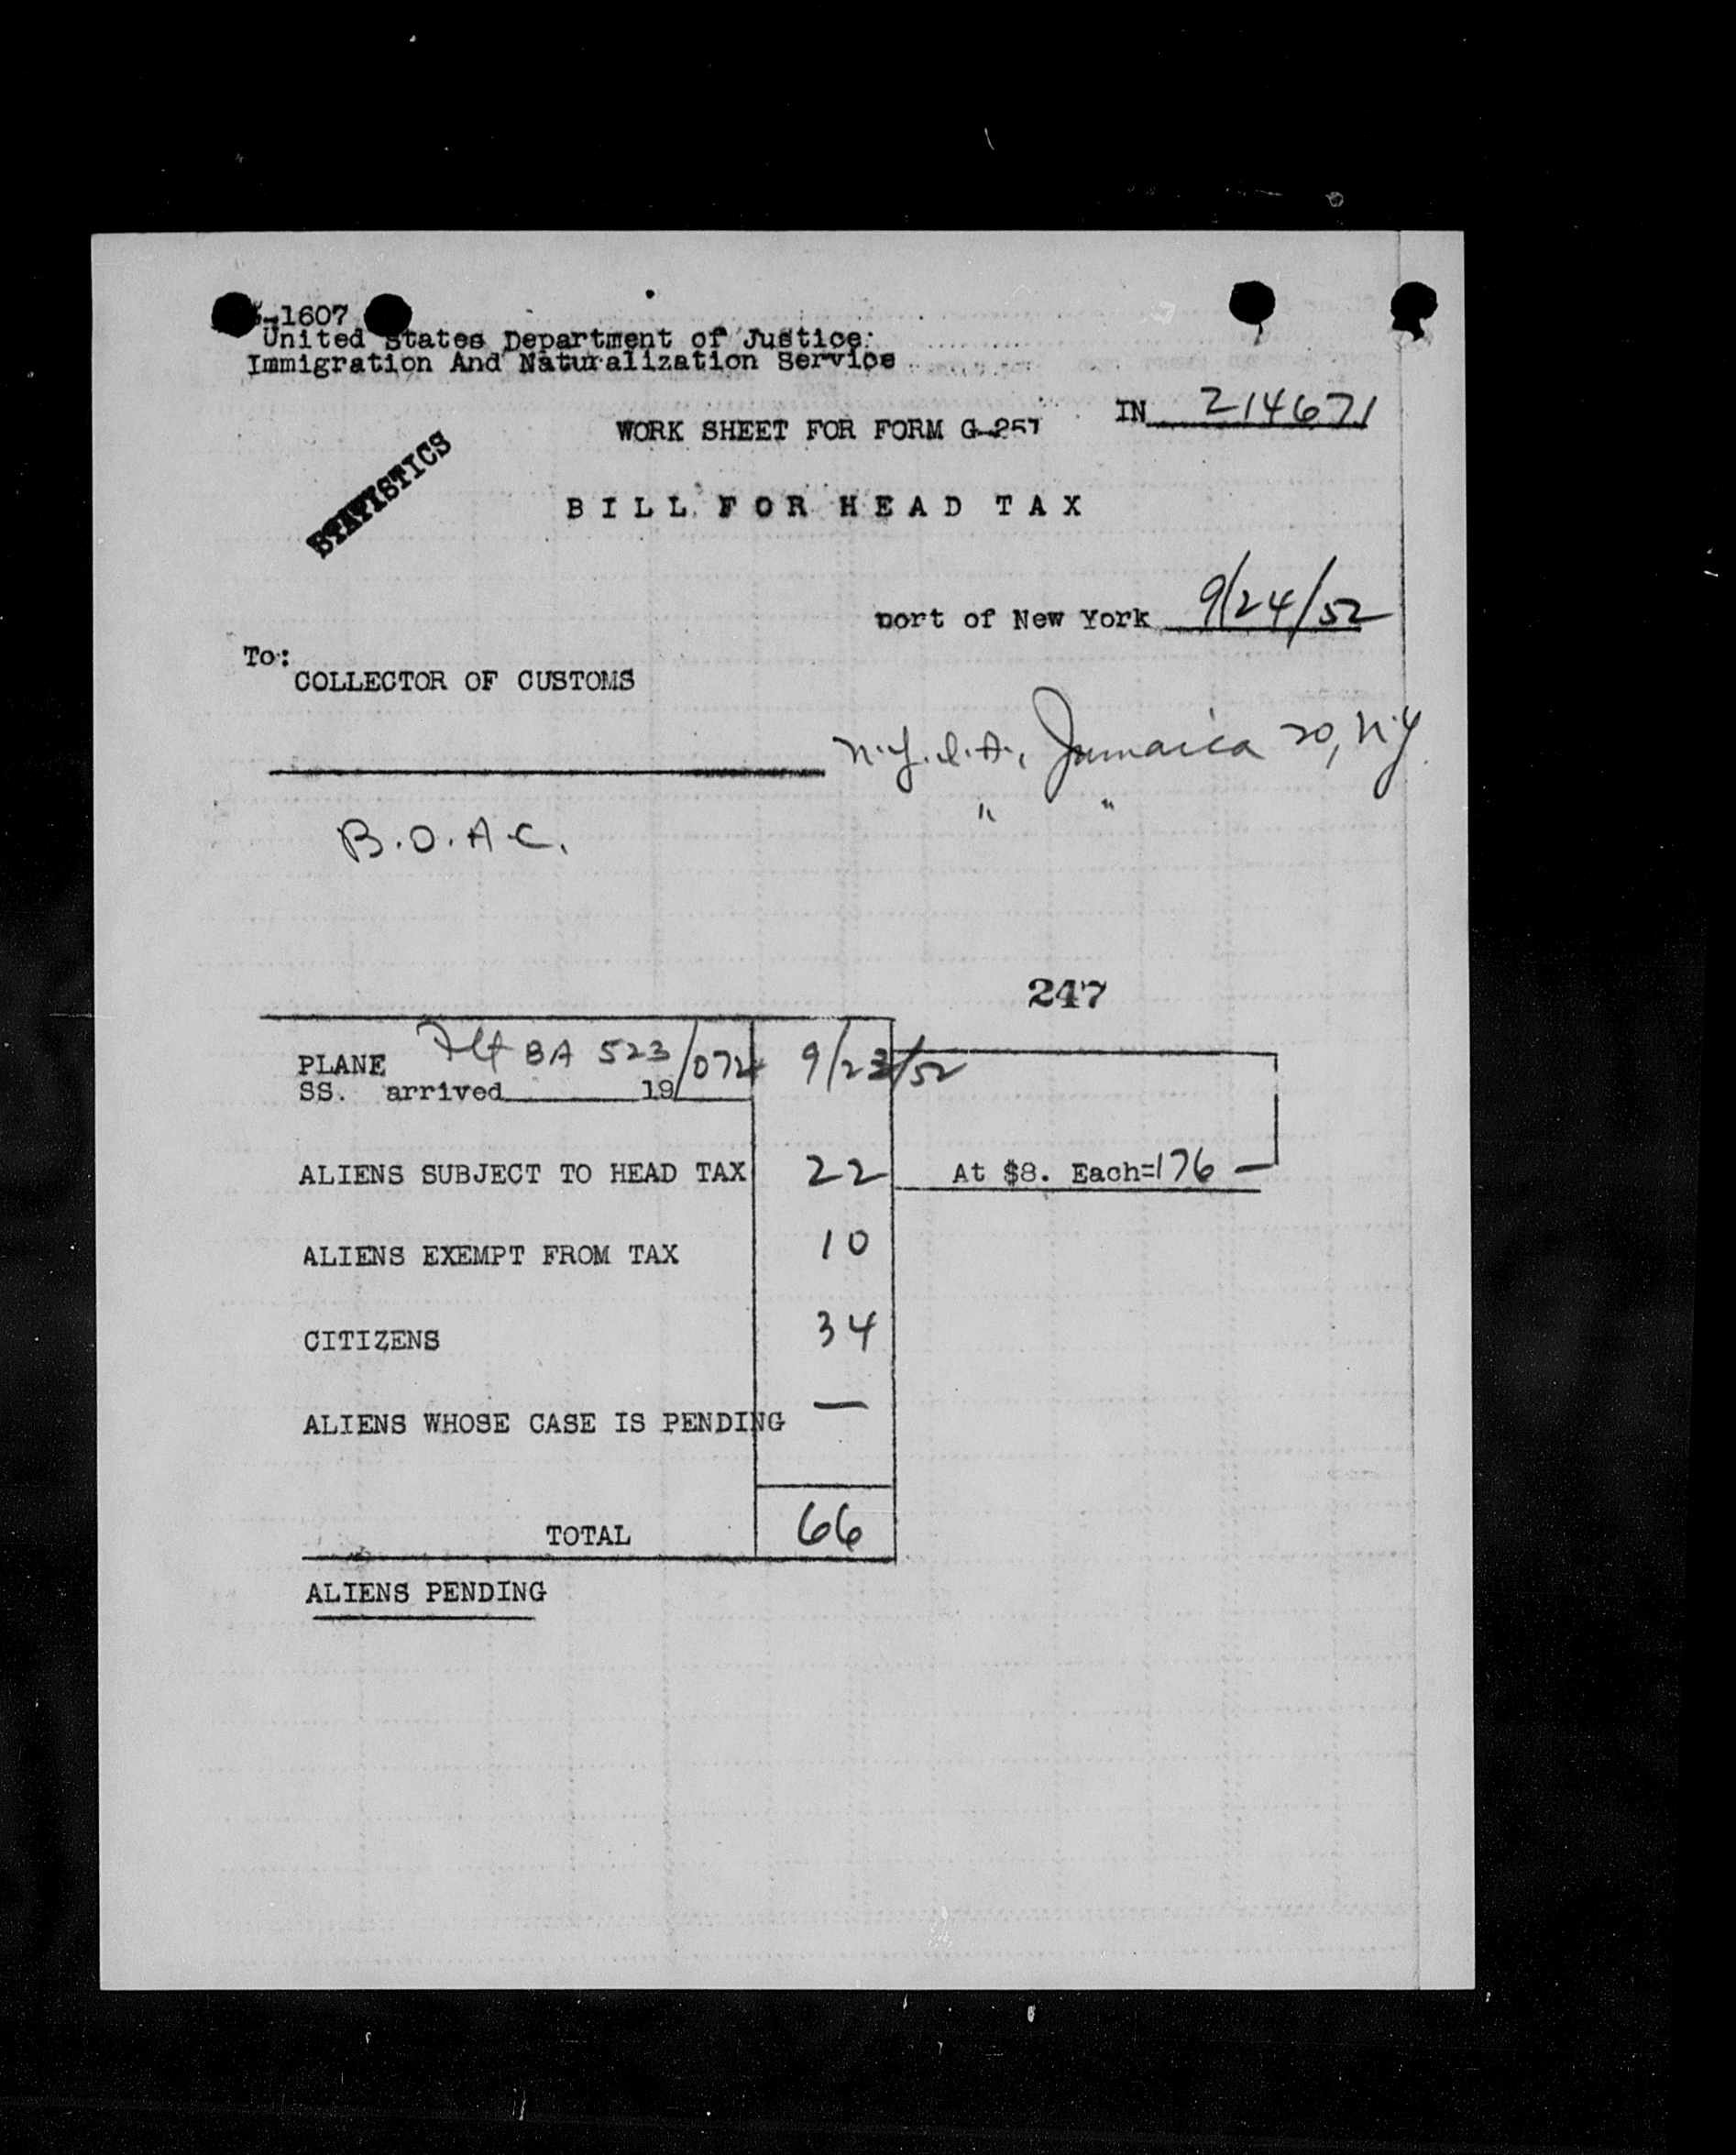 -1607
United States Department of Justice
Immigration And Naturalization Service
IN 214671
WORK SHEET FOR FORM G-257
STATISTICS
BILL FOR HEAD TAX
port of New York 9/24/52
To:
COLLECTOR OF CUSTOMS
N.Y.I.A., Jamaica 20, N.Y.
" "
B.O.A.C.
247
PLANE Flt BA 523/072 9/23/52
SS. arrived 19
ALIENS SUBJECT TO HEAD TAX 22 At $8. Each=176 —
ALIENS EXEMPT FROM TAX 10
CITIZENS 34
ALIENS WHOSE CASE IS PENDING —
TOTAL 66
ALIENS PENDING